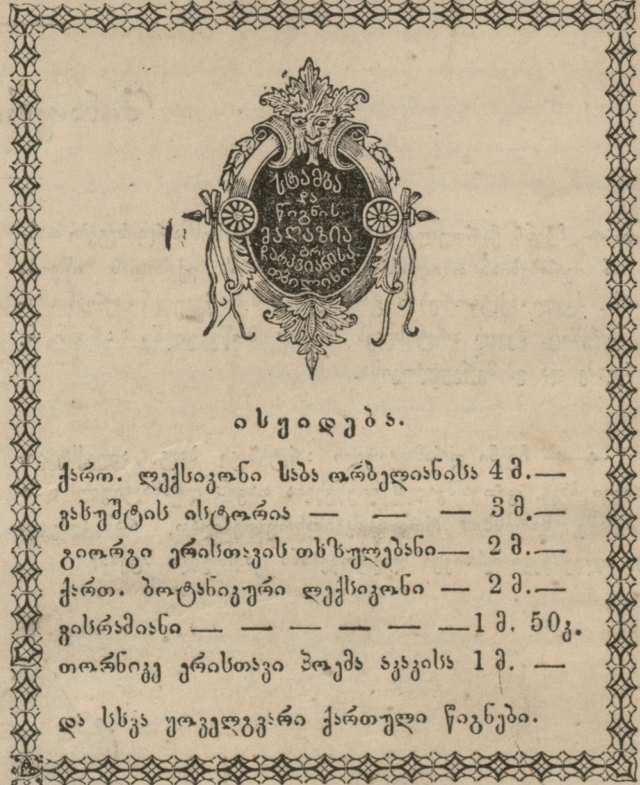 სტამბა
და
წიგნის
მაღაზია
გრ.
ჩარკვიანისა.
თბილისი.
ისყიდება.
ქართ. ლექსიკონი საბა ორბელიანისა 4 მ.—
ვახუშტის ისტორია — — — 3 მ.—
გიორგი ერისთავის თხზულებანი— 2 მ.—
ქართ. ბოტანიკური ლექსიკონი — 2 მ.—
ვისრამიანი — — — — — — —1 მ. 50კ.
თორნიკე ერისთავი პოემა აკაკისა 1 მ. —
და სხვა ყოველგვარი ქართული წიგნები.